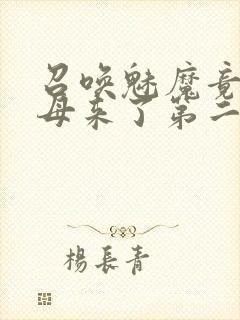 召唤魅魔竟
母来了第二
楊長青